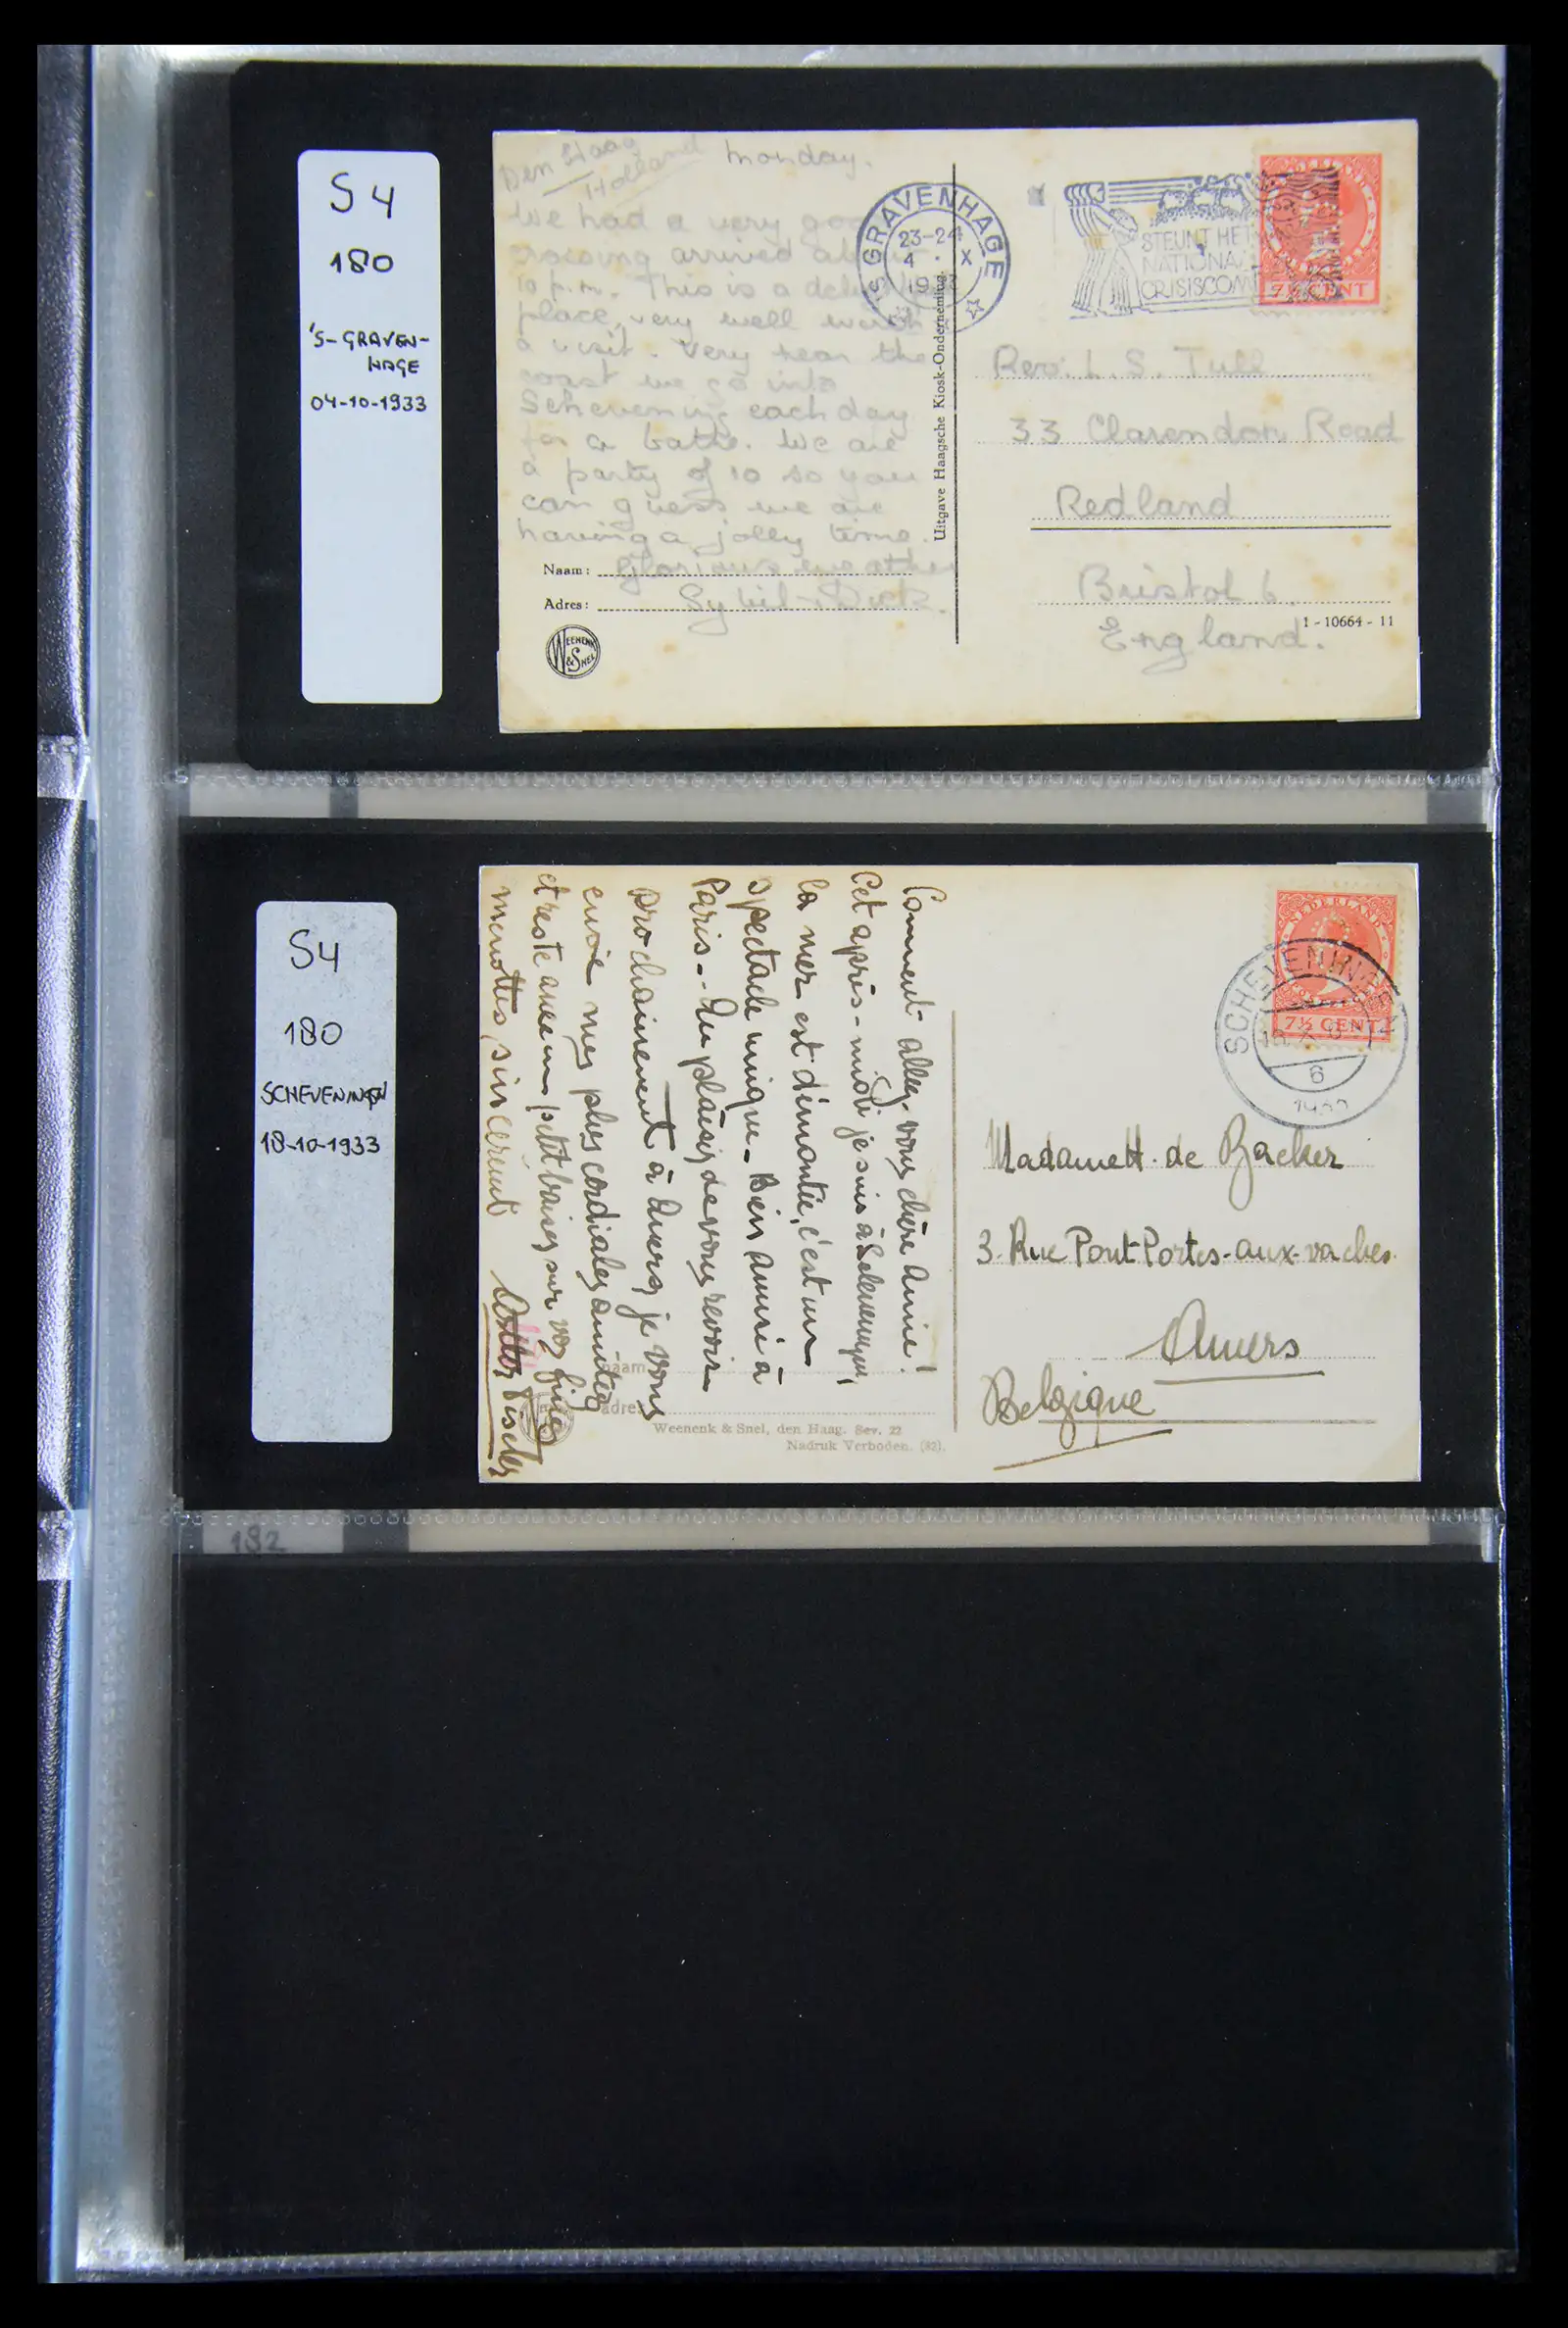 S4
180
'S-GRAVEN-
HAGE
04-10-1933
Den Haag
Holland
Monday.
We had a very good
crossing arrived about
10 p.m. This is a
place, very well worth
a visit. Very near the
coast we go into
Schevening each day
for a bathe. We are
a party of 10 so you
can guess we are
having a jolly time.
Naam: Glorious weather
Adres: Sybil + Dick.
WEENENK
& SNEL
Uitgave Haagsche Kiosk-Onderneming.
'S GRAVENHAGE
23-24
4 · X
1933
STEUNT HET
NATIONAAL
CRISISCOM
7½ CENT
Rev. L. S. Tull
33 Clarendon Road
Redland
Bristol 6.
England.
1 - 10664 - 11
S4
180
SCHEVENINGEN
18-10-1933
Comment allez-vous chère amie!
Cet après-midi je suis à Scheveningen,
la mer est démontée, c'est un
spectacle unique - Bien amusé à
Paris - Au plaisir de vous revoir
prochainement à Anvers je vous
envoie mes plus cordiales amitiés
et reste avec un petit baiser sur vos fines
menottes, sincèrement
naam
adres
Weenenk & Snel, den Haag. Sev. 22
Nadruk Verboden. (82).
NEDERLAND
7½ CENT
SCHEVENINGEN
6
Madame H. de Backer
3. Rue Pont Portes-aux-vaches.
Anvers
Belgique
182